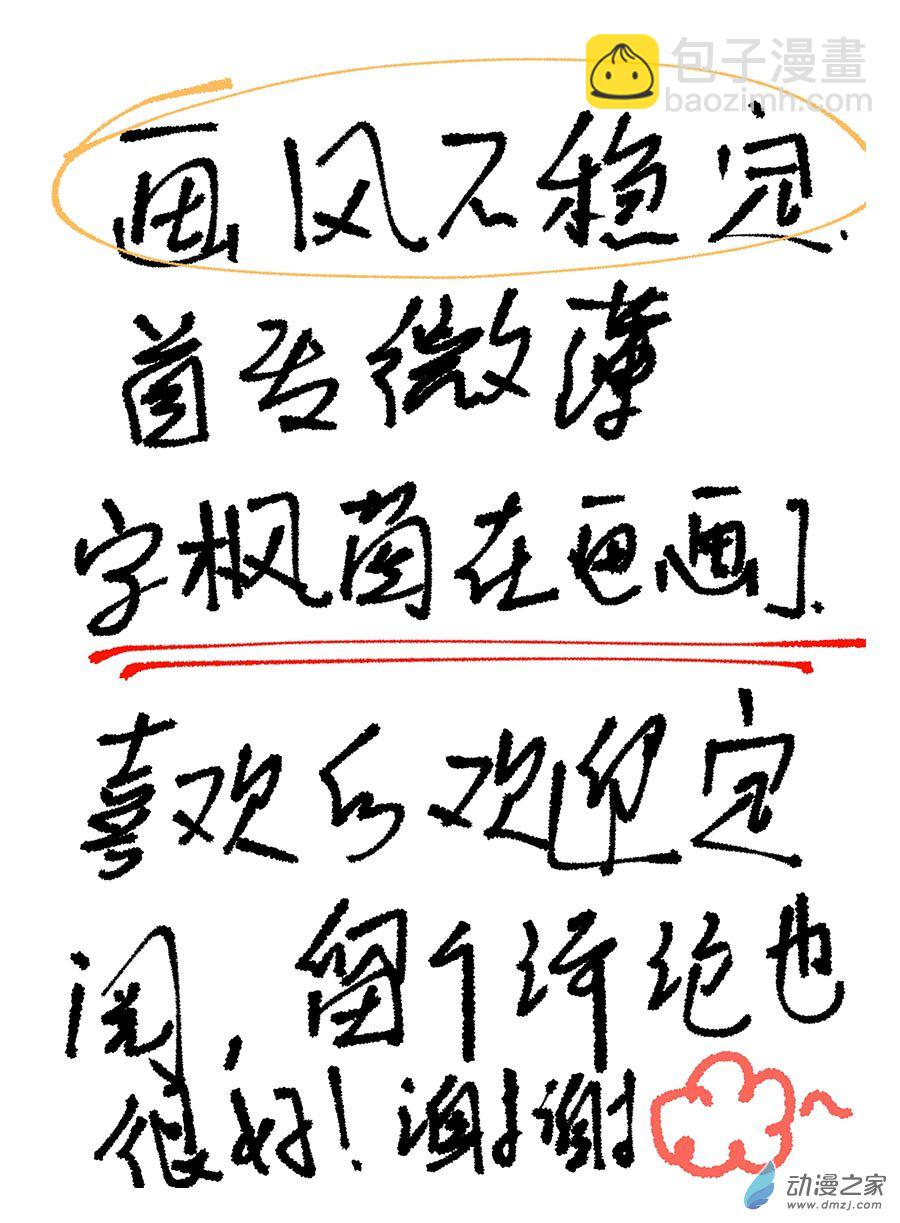 包子漫畫
baozimh.com
画风不稳定.
首发微薄
枫菌在画画].
喜欢的欢迎定
阅,留个评论也
很好!谢谢
动漫之家
www.dmzj.com